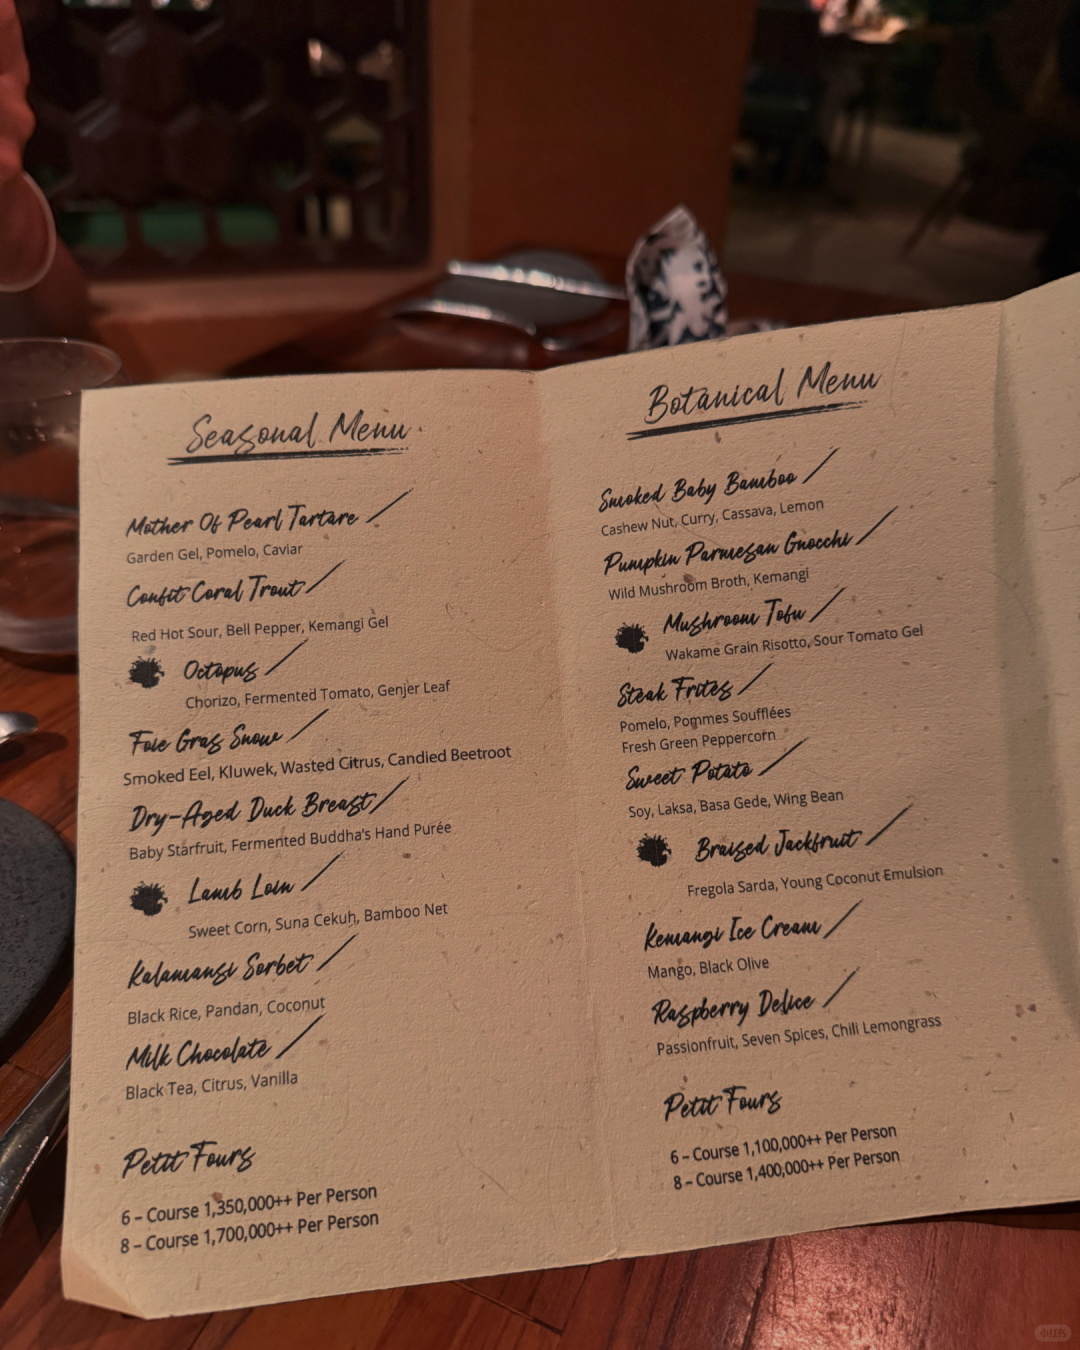 Seasonal Menu
Mother Of Pearl Tartare
Garden Gel, Pomelo, Caviar
Confit Coral Trout
Red Hot Sour, Bell Pepper, Kemangi Gel
Octopus
Chorizo, Fermented Tomato, Genjer Leaf
Foie Gras Snow
Smoked Eel, Kluwek, Wasted Citrus, Candied Beetroot
Dry-Aged Duck Breast
Baby Starfruit, Fermented Buddha's Hand Purée
Lamb Loin
Sweet Corn, Suna Cekuh, Bamboo Net
Kalamansi Sorbet
Black Rice, Pandan, Coconut
Milk Chocolate
Black Tea, Citrus, Vanilla
Petit Fours
6 – Course 1,350,000++ Per Person
8 – Course 1,700,000++ Per Person
Botanical Menu
Smoked Baby Bamboo
Cashew Nut, Curry, Cassava, Lemon
Pumpkin Parmesan Gnocchi
Wild Mushroom Broth, Kemangi
Mushroom Tofu
Wakame Grain Risotto, Sour Tomato Gel
Steak Frites
Pomelo, Pommes Soufflées
Fresh Green Peppercorn
Sweet Potato
Soy, Laksa, Basa Gede, Wing Bean
Braised Jackfruit
Fregola Sarda, Young Coconut Emulsion
Kemangi Ice Cream
Mango, Black Olive
Raspberry Delice
Passionfruit, Seven Spices, Chili Lemongrass
Petit Fours
6 – Course 1,100,000++ Per Person
8 – Course 1,400,000++ Per Person
小红书